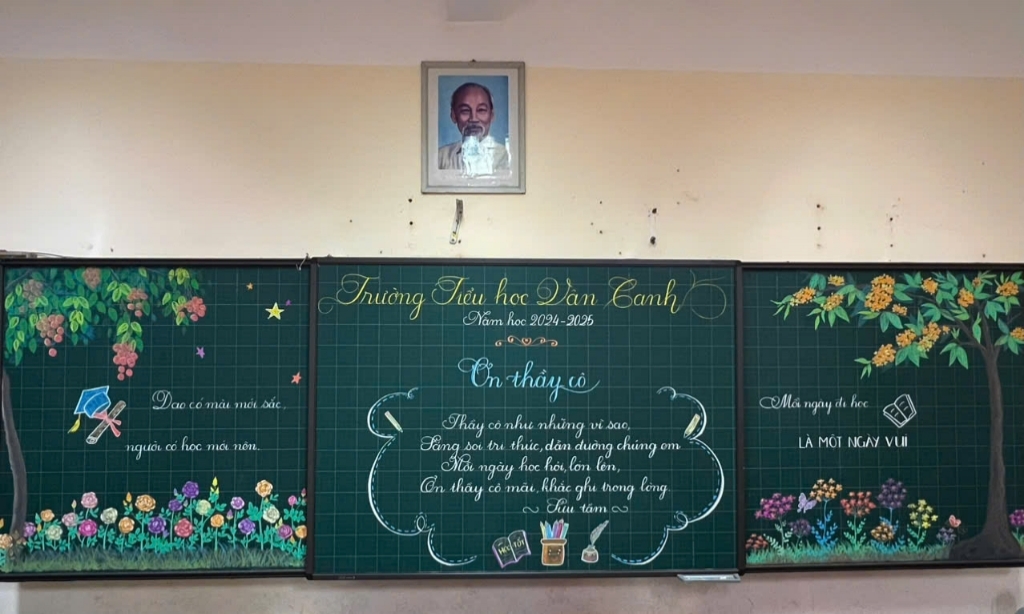 Dao có mài mới sắc,
người có học mới nên.
Trường Tiểu học Vân Canh
Năm học 2024-2025
Ơn thầy cô
Thầy cô như những vì sao,
Sáng soi tri thức, dẫn đường chúng em
Mỗi ngày học hỏi, lớn lên,
Ơn thầy cô mãi, khắc ghi trong lòng.
~ Sưu tầm ~
HỌC TỐT
Mỗi ngày đi học
LÀ MỘT NGÀY VUI